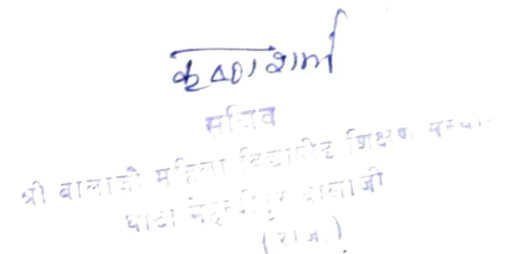 कृष्णा शर्मा
सचिव
श्री बालाजी महिला विद्यापीठ शिक्षण संस्था
घाटा मेहन्दीपुर बालाजी
(राज.)